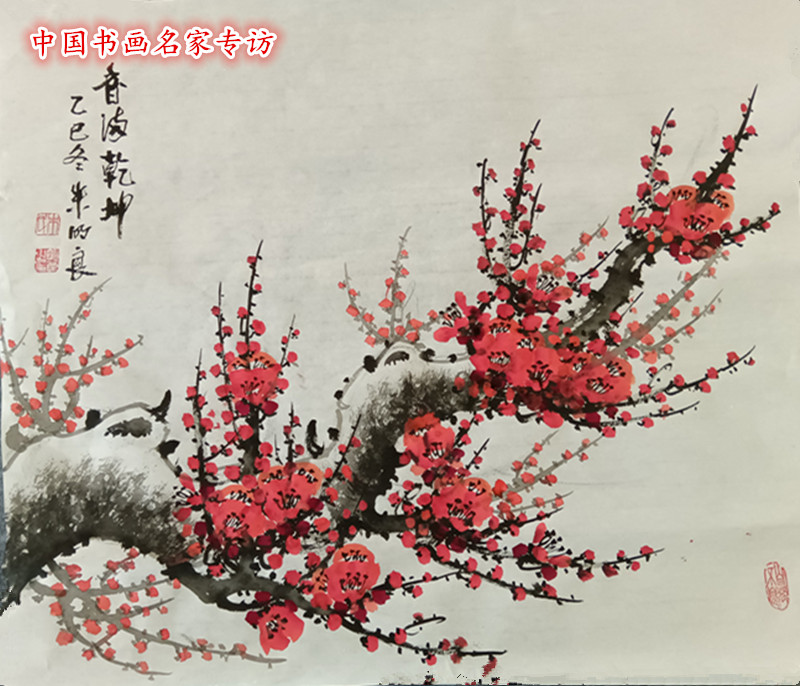 中国书画名家专访
香满乾坤
乙巳冬朱明良